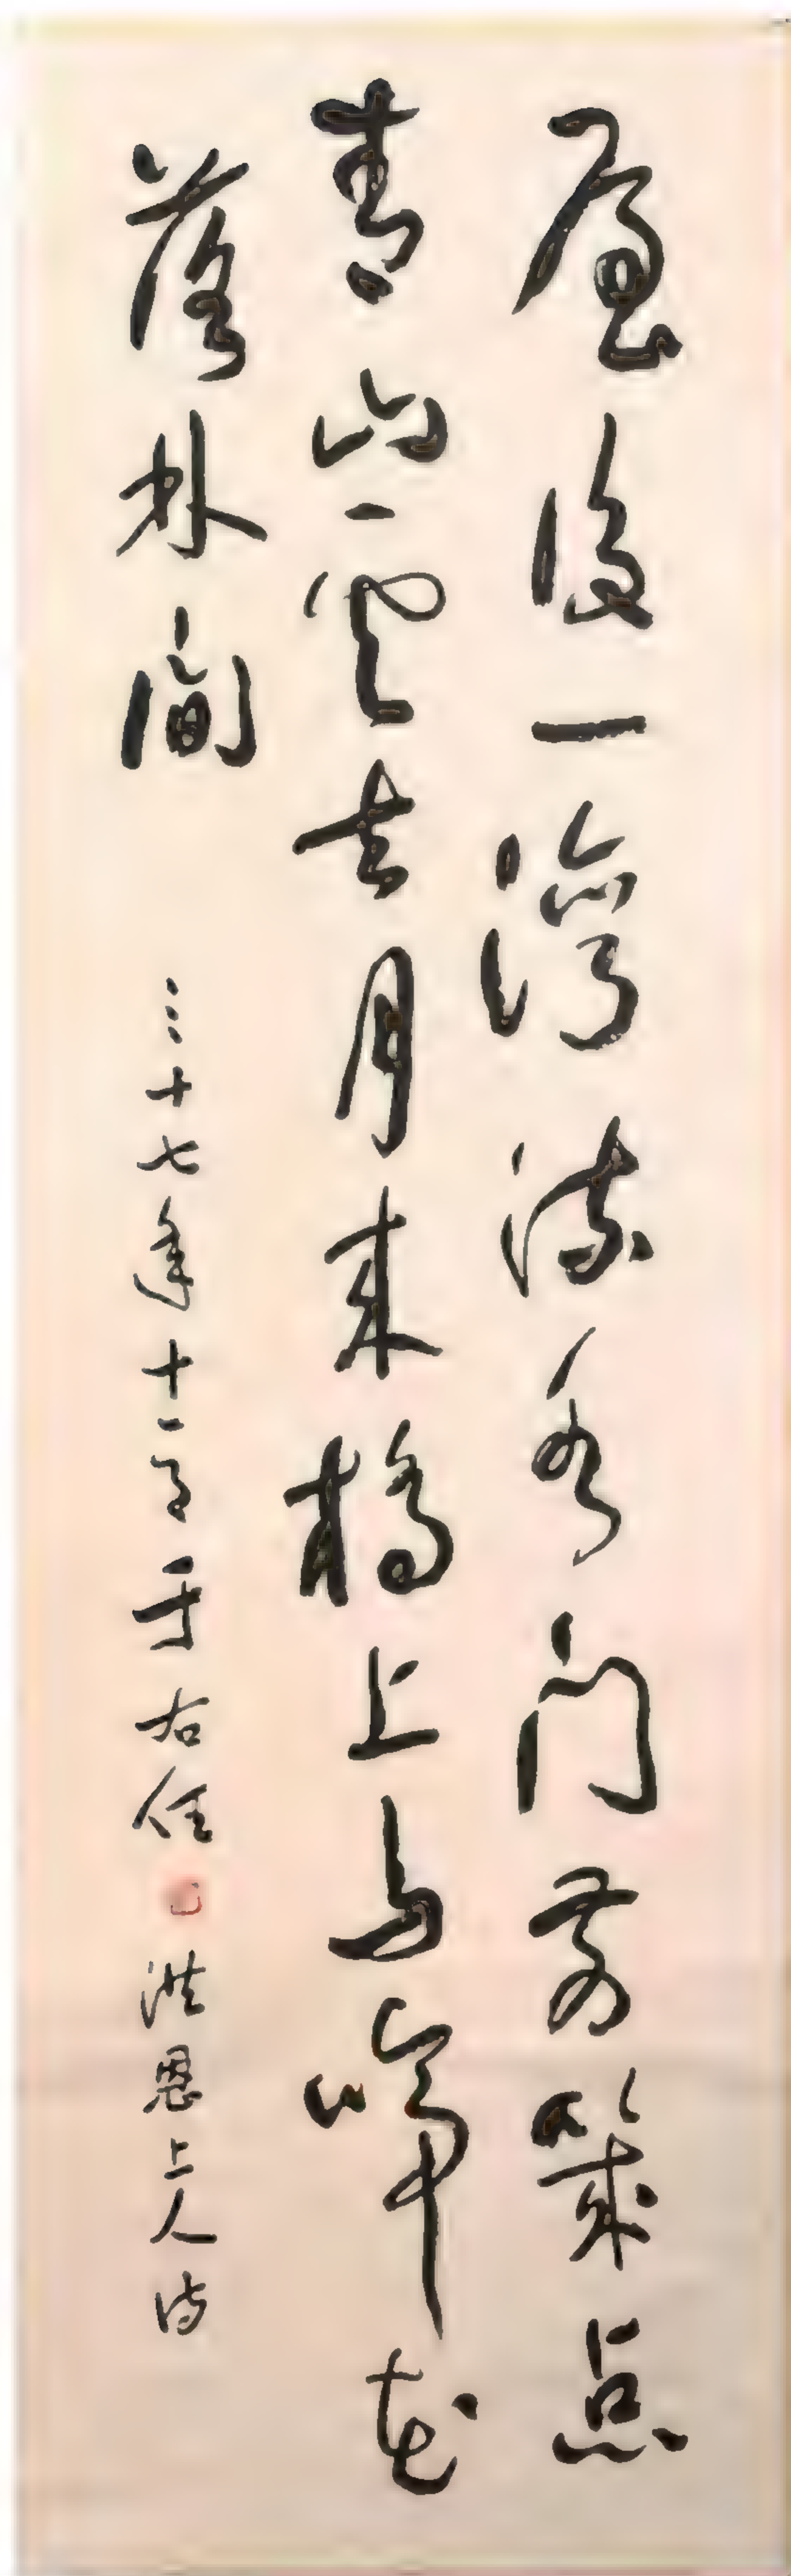 屋後一灣流水門前幾点
青山雲去月来橋上鳥啼花
落林間
三十七年十一月于右任
洪恩上人詩